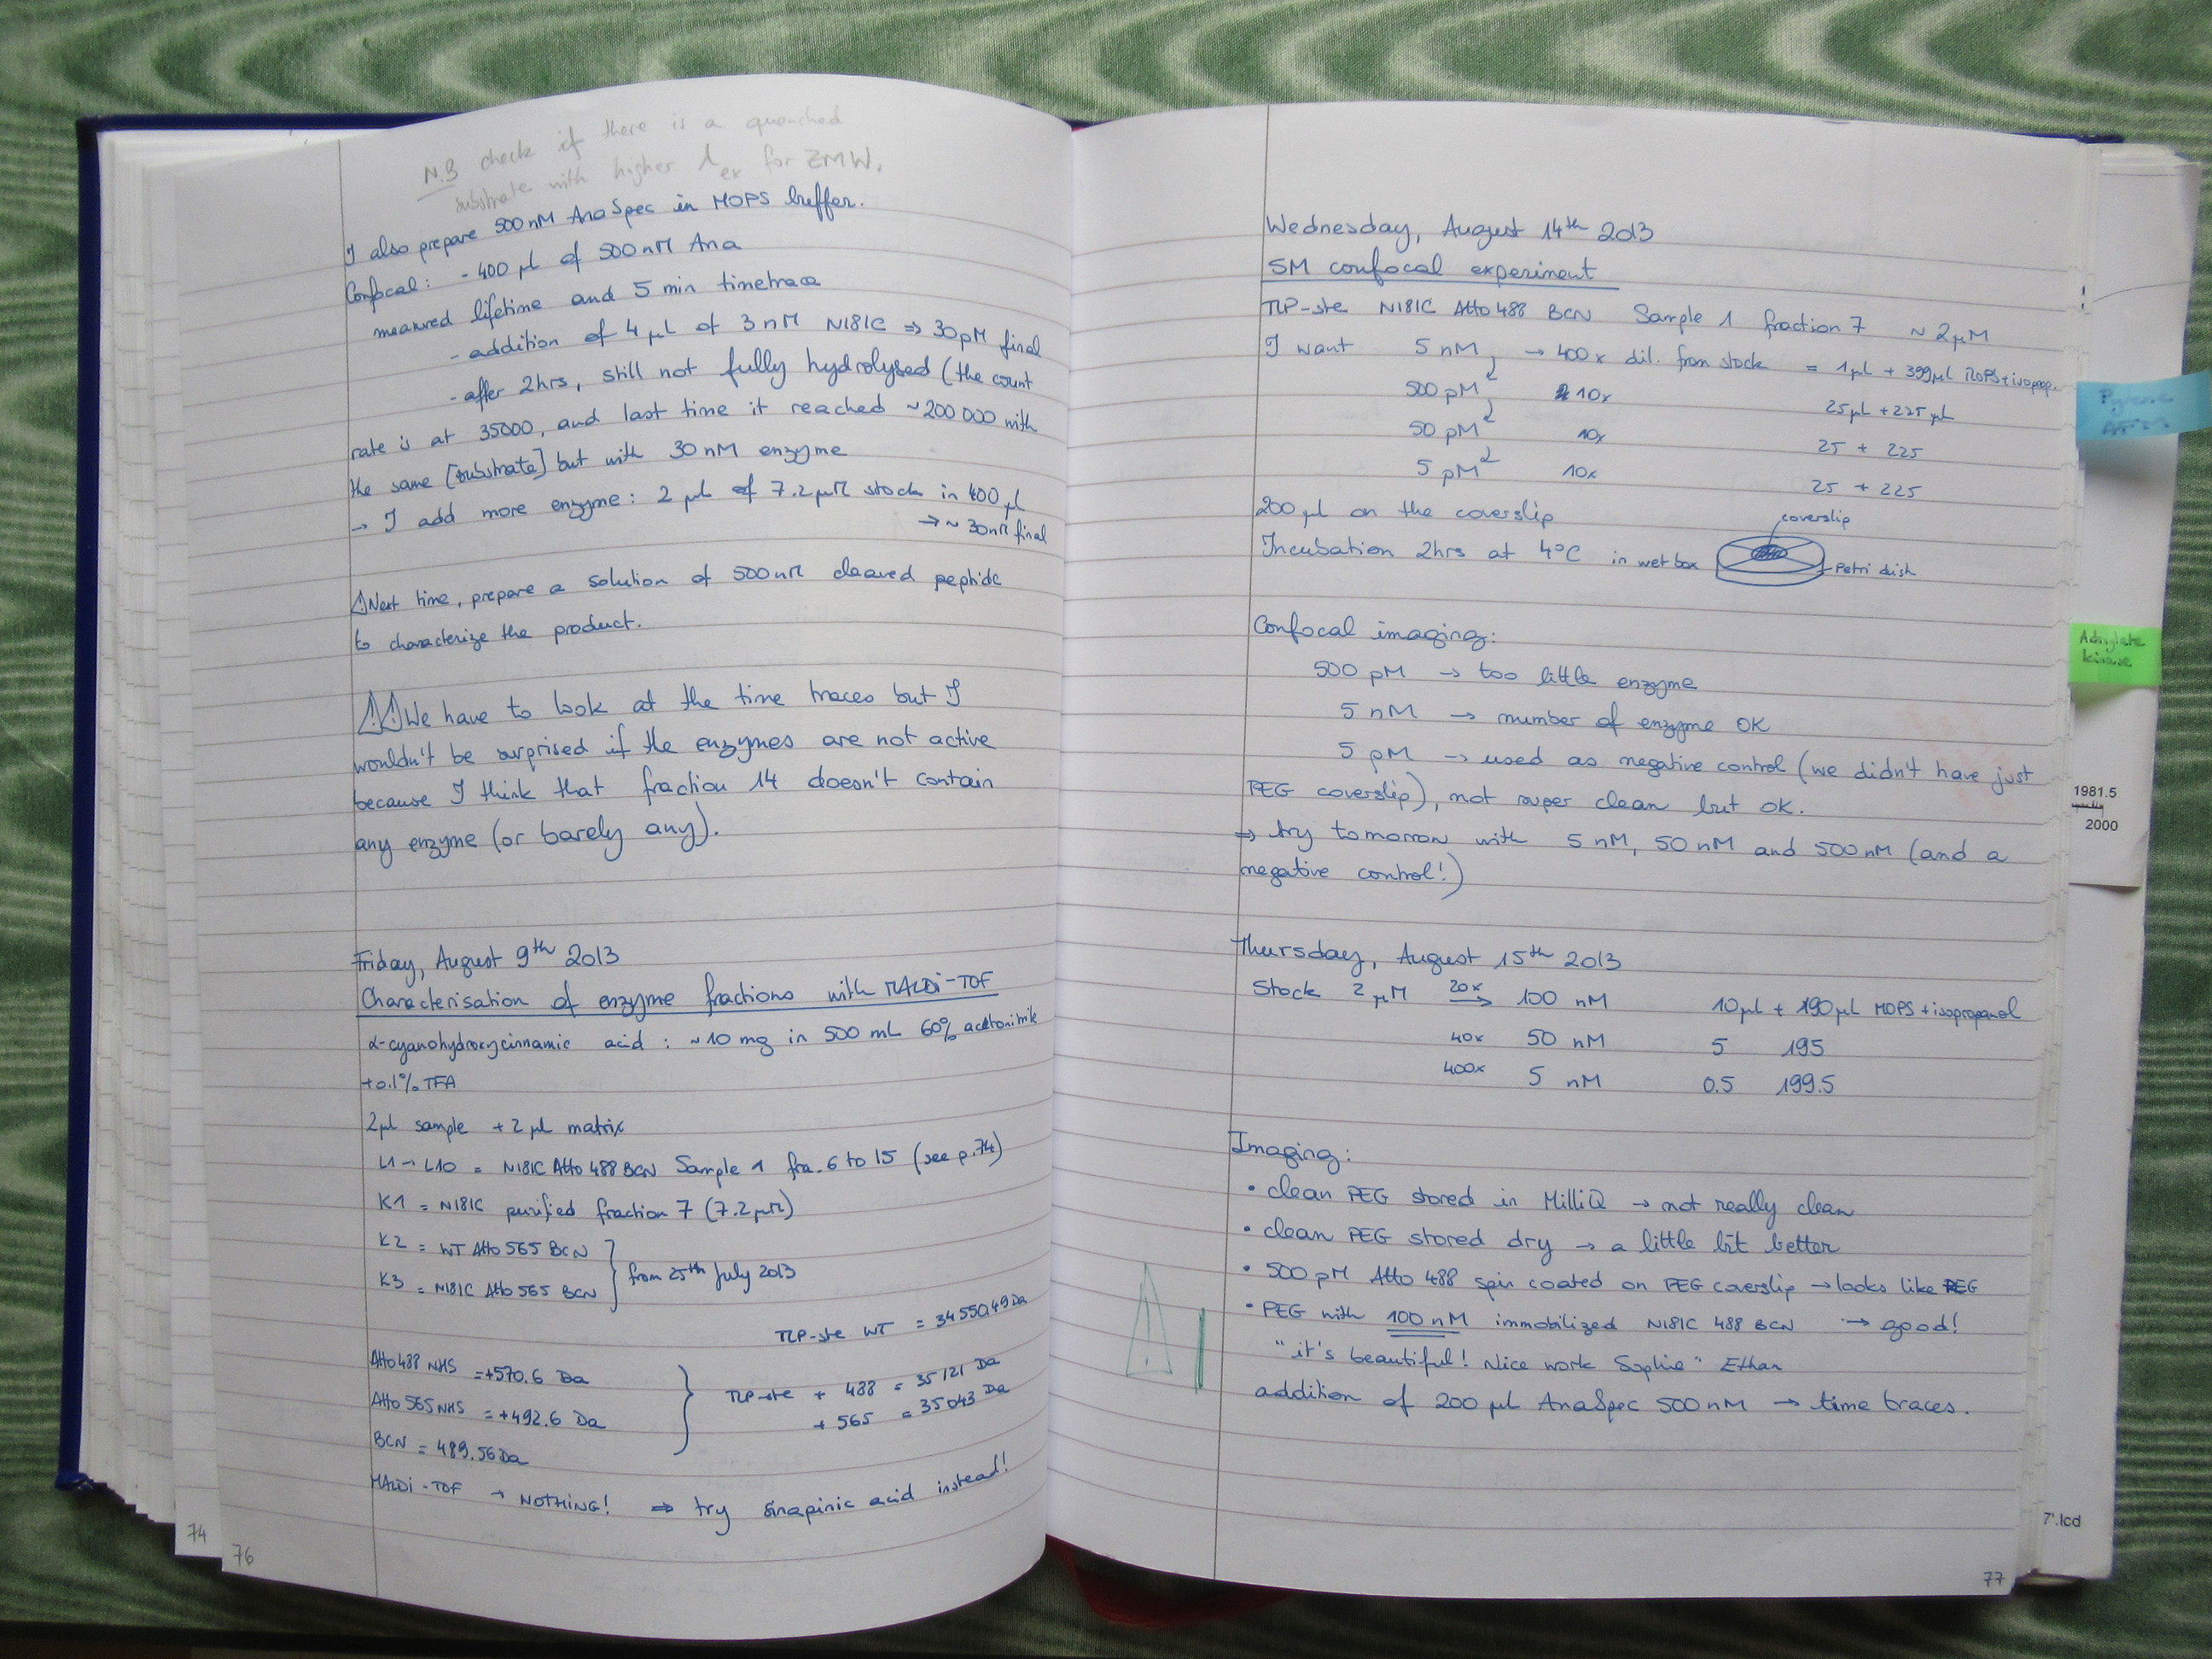 N.B check if there is a quenched
substrate with higher λex for ZMW.
I also prepare 500 nM AnaSpec in MOPS buffer.
Confocal: - 400 μl of 500 nM Ana
measured lifetime and 5 min timetrace
- addition of 4 μL of 3 nM N181C ⇒ 30 pM final
- after 2hrs, still not fully hydrolysed (the count
rate is at 35000, and last time it reached ~200 000 with
the same [substrate] but with 30 nM enzyme
→ I add more enzyme: 2 μl of 7.2 μM stock in 400 μl
→ ~ 30 nM final
⚠ Next time, prepare a solution of 500 nM cleaved peptide
to characterize the product.
⚠⚠ We have to look at the time traces but I
wouldn't be surprised if the enzymes are not active
because I think that fraction 14 doesn't contain
any enzyme (or barely any).
Friday, August 9th 2013
Characterisation of enzyme fractions with MALDi-TOF
α-cyanohydroxycinnamic acid : ~10 mg in 500 mL 60% acetonitrile
+0.1% TFA
2μl sample + 2 μl matrix
L1 → L10 = N181C Atto 488 BCN Sample 1 fra. 6 to 15 (see p.74)
K1 = N181C purified fraction 7 (7.2 μM)
K2 = WT Atto 565 BCN
K3 = N181C Atto 565 BCN } from 25th July 2013
TLP-ste WT = 34550.49 Da
Atto 488 NHS = +570.6 Da
Atto 565 NHS = +492.6 Da
BCN = 489.56 Da
TLP-ste + 488 = 35121 Da
+ 565 = 35043 Da
MALDi-TOF → NOTHING! ⇒ try sinapinic acid instead!
74
76
Wednesday, August 14th 2013
SM confocal experiment
TLP-ste N181C Atto 488 BCN Sample 1 fraction 7 ~ 2 μM
I want 5 nM → 400x dil. from stock = 1 μl + 399 μl MOPS + isoprop.
500 pM 10x 25 μl + 225 μl
50 pM 10x 25 + 225
5 pM 10x 25 + 225
200 μl on the coverslip
coverslip
Incubation 2hrs at 4°C in wet box
Petri dish
Confocal imaging:
500 pM → too little enzyme
5 nM → number of enzyme OK
5 pM → used as negative control (we didn't have just
PEG coverslip), not super clean but OK.
⇒ try tomorrow with 5 nM, 50 nM and 500 nM (and a
negative control!)
Thursday, August 15th 2013
Stock 2 μM 20x → 100 nM 10 μl + 190 μl MOPS + isopropanol
40x 50 nM 5 195
400x 5 nM 0.5 199.5
Imaging:
• clean PEG stored in MilliQ → not really clean
• clean PEG stored dry → a little bit better
• 500 pM Atto 488 spin coated on PEG coverslip → looks like PEG
• PEG with 100 nM immobilized N181C 488 BCN → good!
"it's beautiful! Nice work Sophie" Ethan
addition of 200 μl AnaSpec 500 nM → time traces.
77
Adenylate
kinase
1981.5
2000
7'.lcd